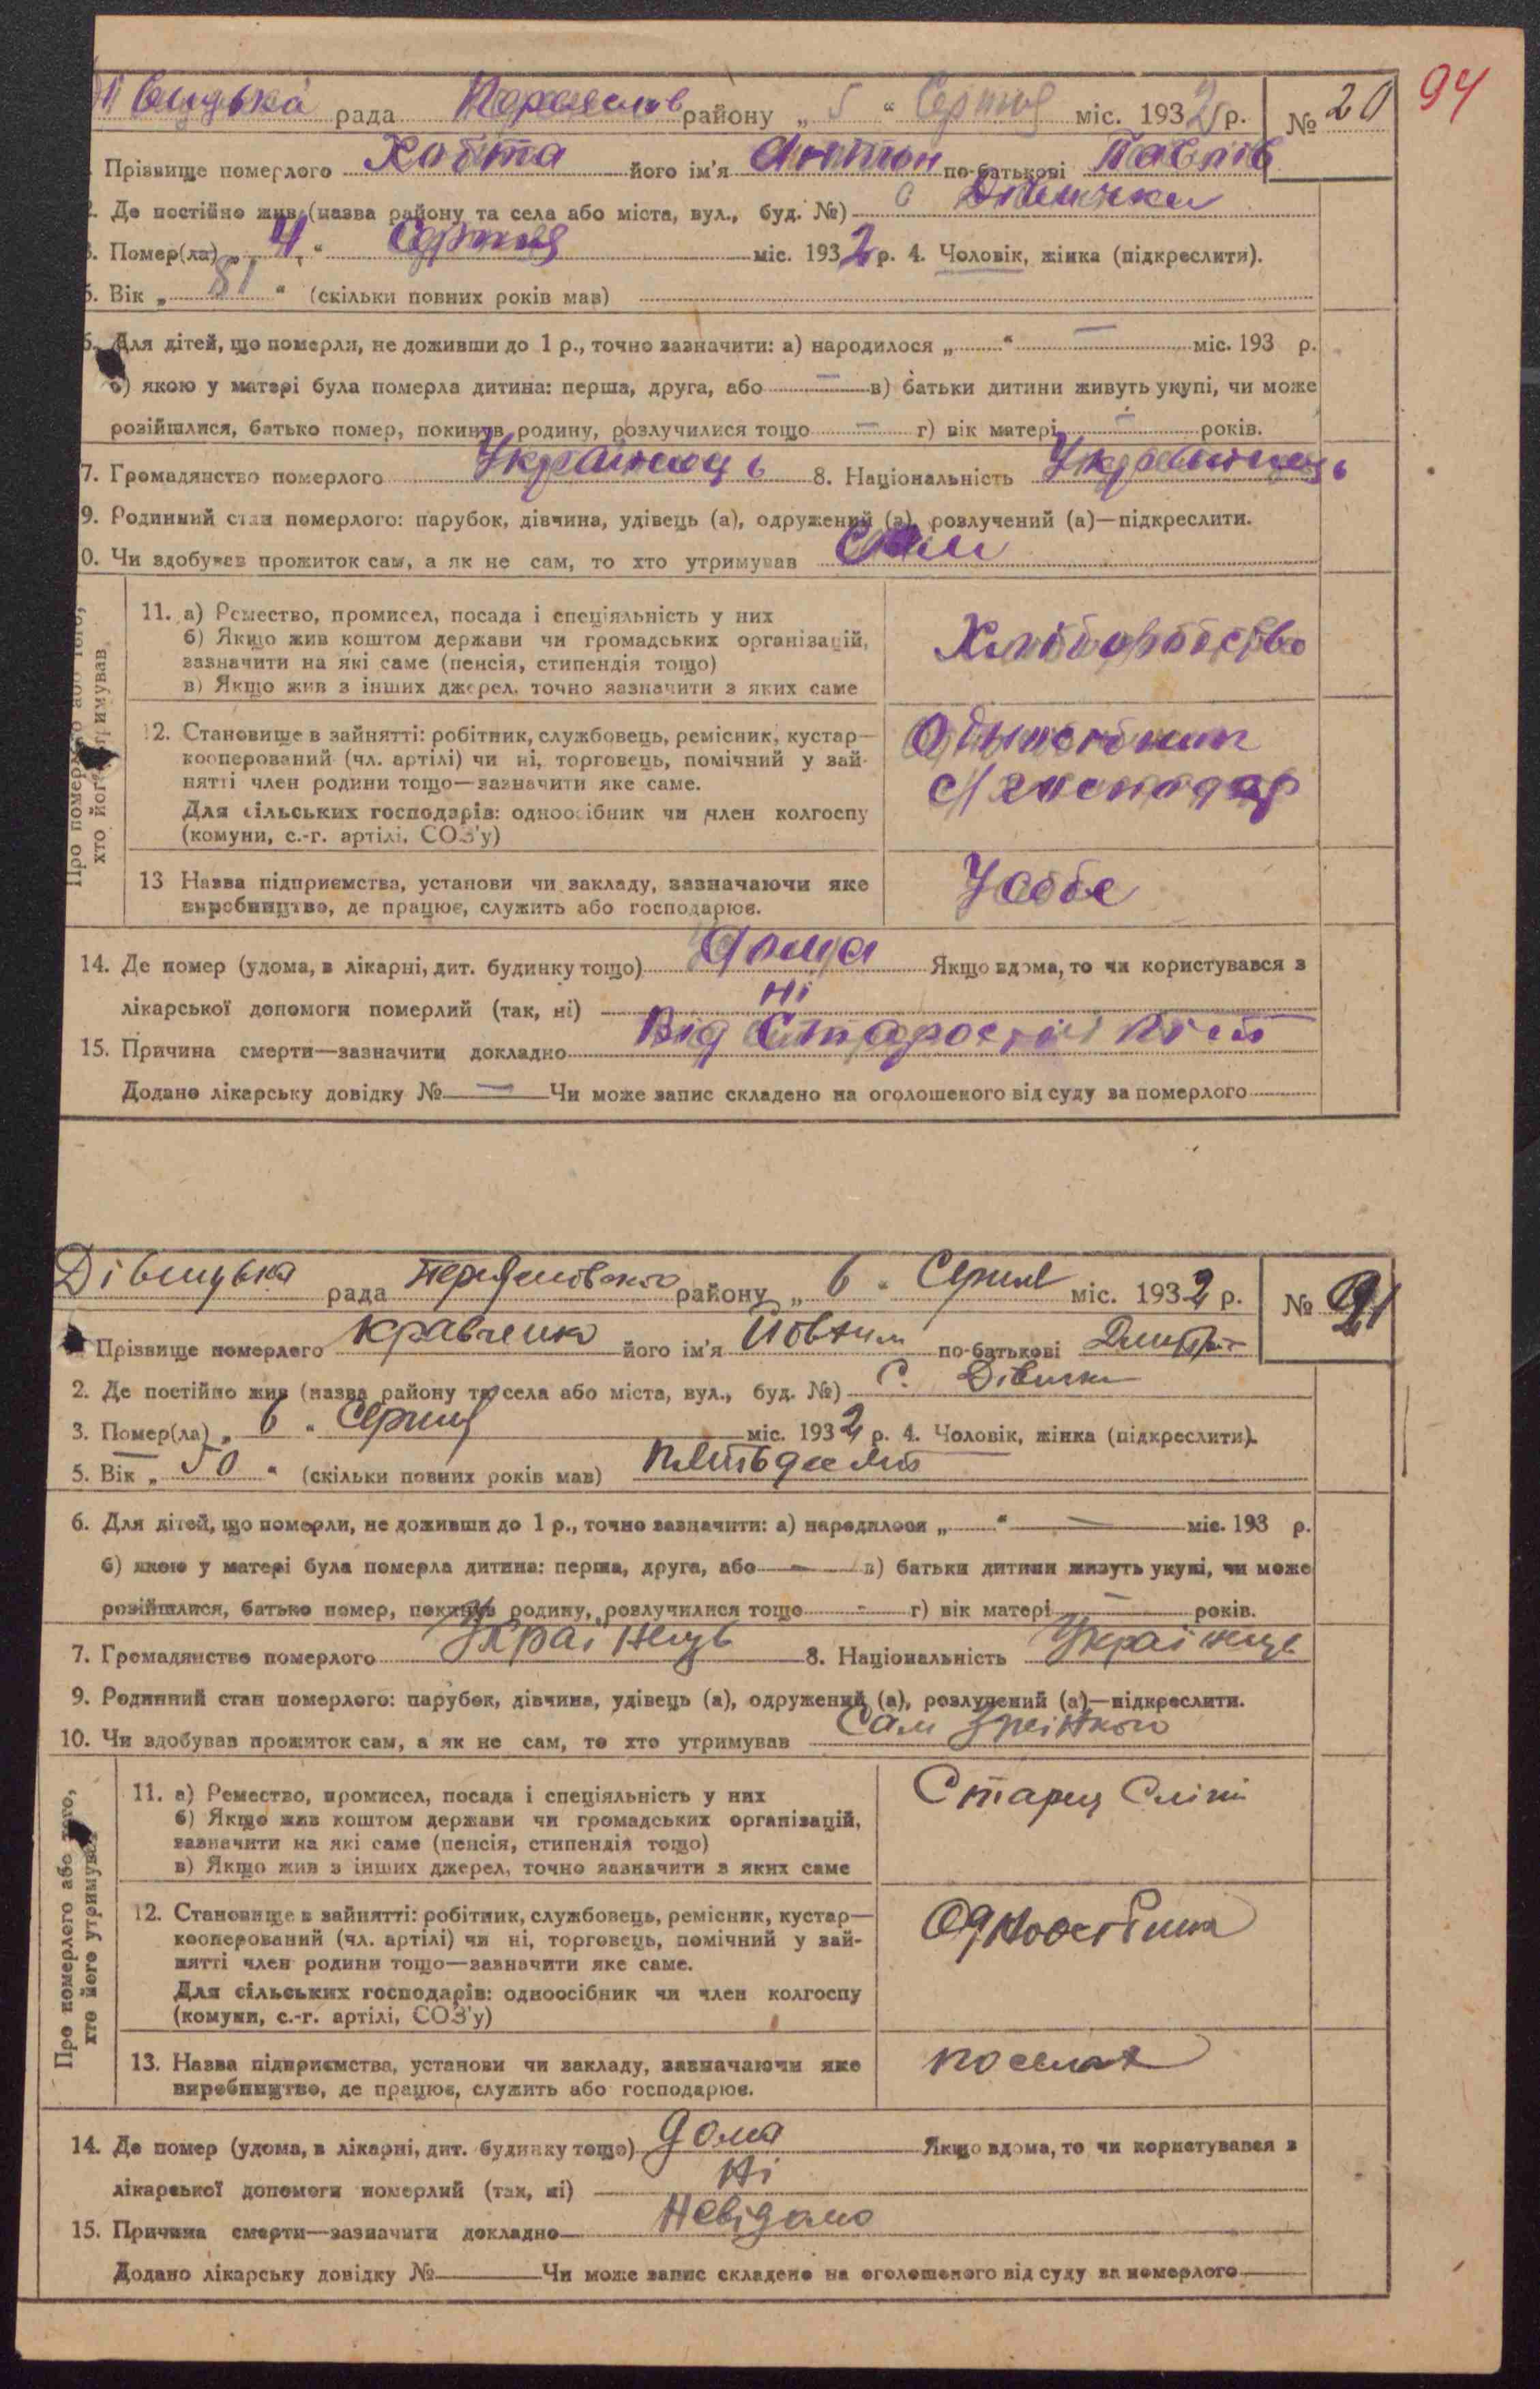 94
Дівицька рада Переяслів району „ 5 “ Серпня міс. 1932 р. № 20
Прізвище померлого Хобта його ім'я Антон по-батькові Павлів
2. Де постійно жив (назва району та села або міста, вул., буд. №) с Дівички
3. Помер(ла) „ 4 “ Серпня міс. 1932 р. 4. Чоловік, жінка (підкреслити).
5. Вік „ 81 “ (скільки повних років мав)
6. Для дітей, що померли, не доживши до 1 р., точно зазначити: а) народилося „ “ — міс. 193 р.
б) якою у матері була померла дитина: перша, друга, або — в) батьки дитини живуть укупі, чи може
розійшлися, батько помер, покинув родину, розлучилися тощо — г) вік матері — років.
7. Громадянство померлого Українець 8. Національність Українець
9. Родинний стан померлого: парубок, дівчина, удівець (а), одружений (а), розлучений (а)—підкреслити.
0. Чи здобував прожиток сам, а як не сам, то хто утримував Сам
Про померлого або того, хто його утримував
11. а) Ремество, промисел, посада і спеціяльність у них
б) Якщо жив коштом держави чи громадських організацій,
зазначити на які саме (пенсія, стипендія тощо)
в) Якщо жив з інших джерел, точно зазначити з яких саме
Хліборобство
12. Становище в зайнятті: робітник, службовець, ремісник, кустар—
кооперований (чл. артілі) чи ні, торговець, помічний у зай-
нятті член родини тощо—зазначити яке саме.
Для сільських господарів: одноосібник чи член колгоспу
(комуни, с.-г. артілі, СОЗ'у)
с/господар
13 Назва підприємства, установи чи закладу, зазначаючи яке
виробництво, де працює, служить або господарює.
У себе
14. Де помер (удома, в лікарні, дит. будинку тощо) дома Якщо вдома, то чи користувався з
лікарської допомоги померлий (так, ні) ні
15. Причина смерти—зазначити докладно Від Старости літ
Додано лікарську довідку № — Чи може запис складено на оголошеного від суду за померлого
Дівицька рада Переяславского району „ 6 “ Серпня міс. 1932 р. № 21
Прізвище померлого Кравченко його ім'я Йовхим по-батькові
2. Де постійно жив (назва району та села або міста, вул., буд. №) С. Дівички
3. Помер(ла) „ 6 “ Серпня міс. 1932 р. 4. Чоловік, жінка (підкреслити).
5. Вік „ 50 “ (скільки повних років мав) Пятьдесят
6. Для дітей, що померли, не доживши до 1 р., точно зазначити: а) народилося „ “ — міс. 193 р.
б) якою у матері була померла дитина: перша, друга, або — в) батьки дитини живуть укупі, чи може
розійшлися, батько помер, покинув родину, розлучилися тощо - г) вік матері — років.
7. Громадянство померлого Українець 8. Національність Українець
9. Родинний стан померлого: парубок, дівчина, удівець (а), одружений (а), розлучений (а)—підкреслити.
10. Чи здобував прожиток сам, а як не сам, то хто утримував Сам з жінкою
Про померлого або того, хто його утримував
11. а) Ремество, промисел, посада і спеціяльність у них
б) Якщо жив коштом держави чи громадських організацій,
зазначити на які саме (пенсія, стипендія тощо)
в) Якщо жив з інших джерел, точно зазначити з яких саме
Старец Сліпий
12. Становище в зайнятті: робітник, службовець, ремісник, кустар—
кооперований (чл. артілі) чи ні, торговець, помічний у зай-
нятті член родини тощо—зазначити яке саме.
Для сільських господарів: одноосібник чи член колгоспу
(комуни, с.-г. артілі, СОЗ'у)
Одноосібник
13. Назва підприємства, установи чи закладу, зазначаючи яке
виробництво, де працює, служить або господарює.
по селах
14. Де помер (удома, в лікарні, дит. будинку тощо) дома Якщо вдома, то чи користувався з
лікарської допомоги померлий (так, ні) Ні
15. Причина смерти—зазначити докладно Невідомо
Додано лікарську довідку № Чи може запис складено на оголошеного від суду за померлого